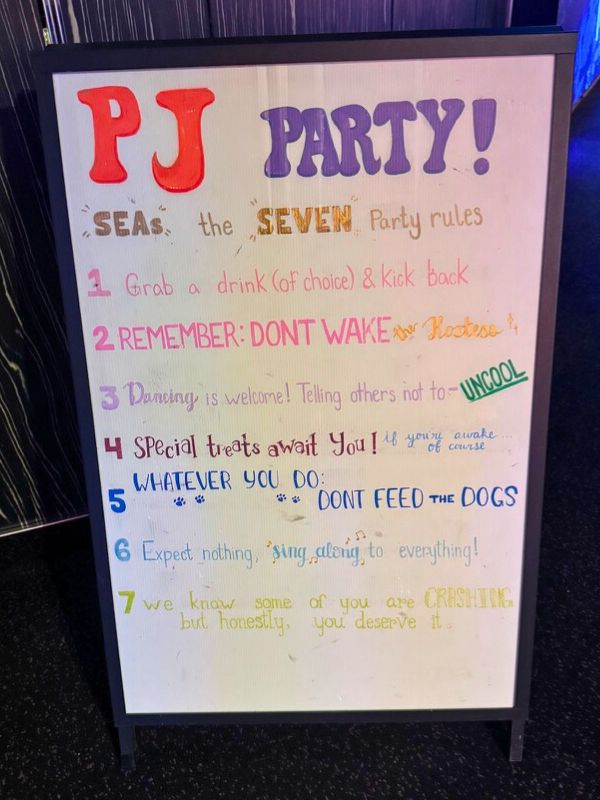 PJ PARTY!
SEAs the SEVEN Party rules
1 Grab a drink (of choice) & Kick back
2 REMEMBER: DONT WAKE the Hostess
3 Dancing is welcome! Telling others not to- UNCOOL
4 Special treats await You! if you're awake...
of course
5 WHATEVER YOU DO:
DONT FEED THE DOGS
6 Expect nothing, sing along to everything!
7 we know some of you are CRASHING
but honestly, you deserve it.